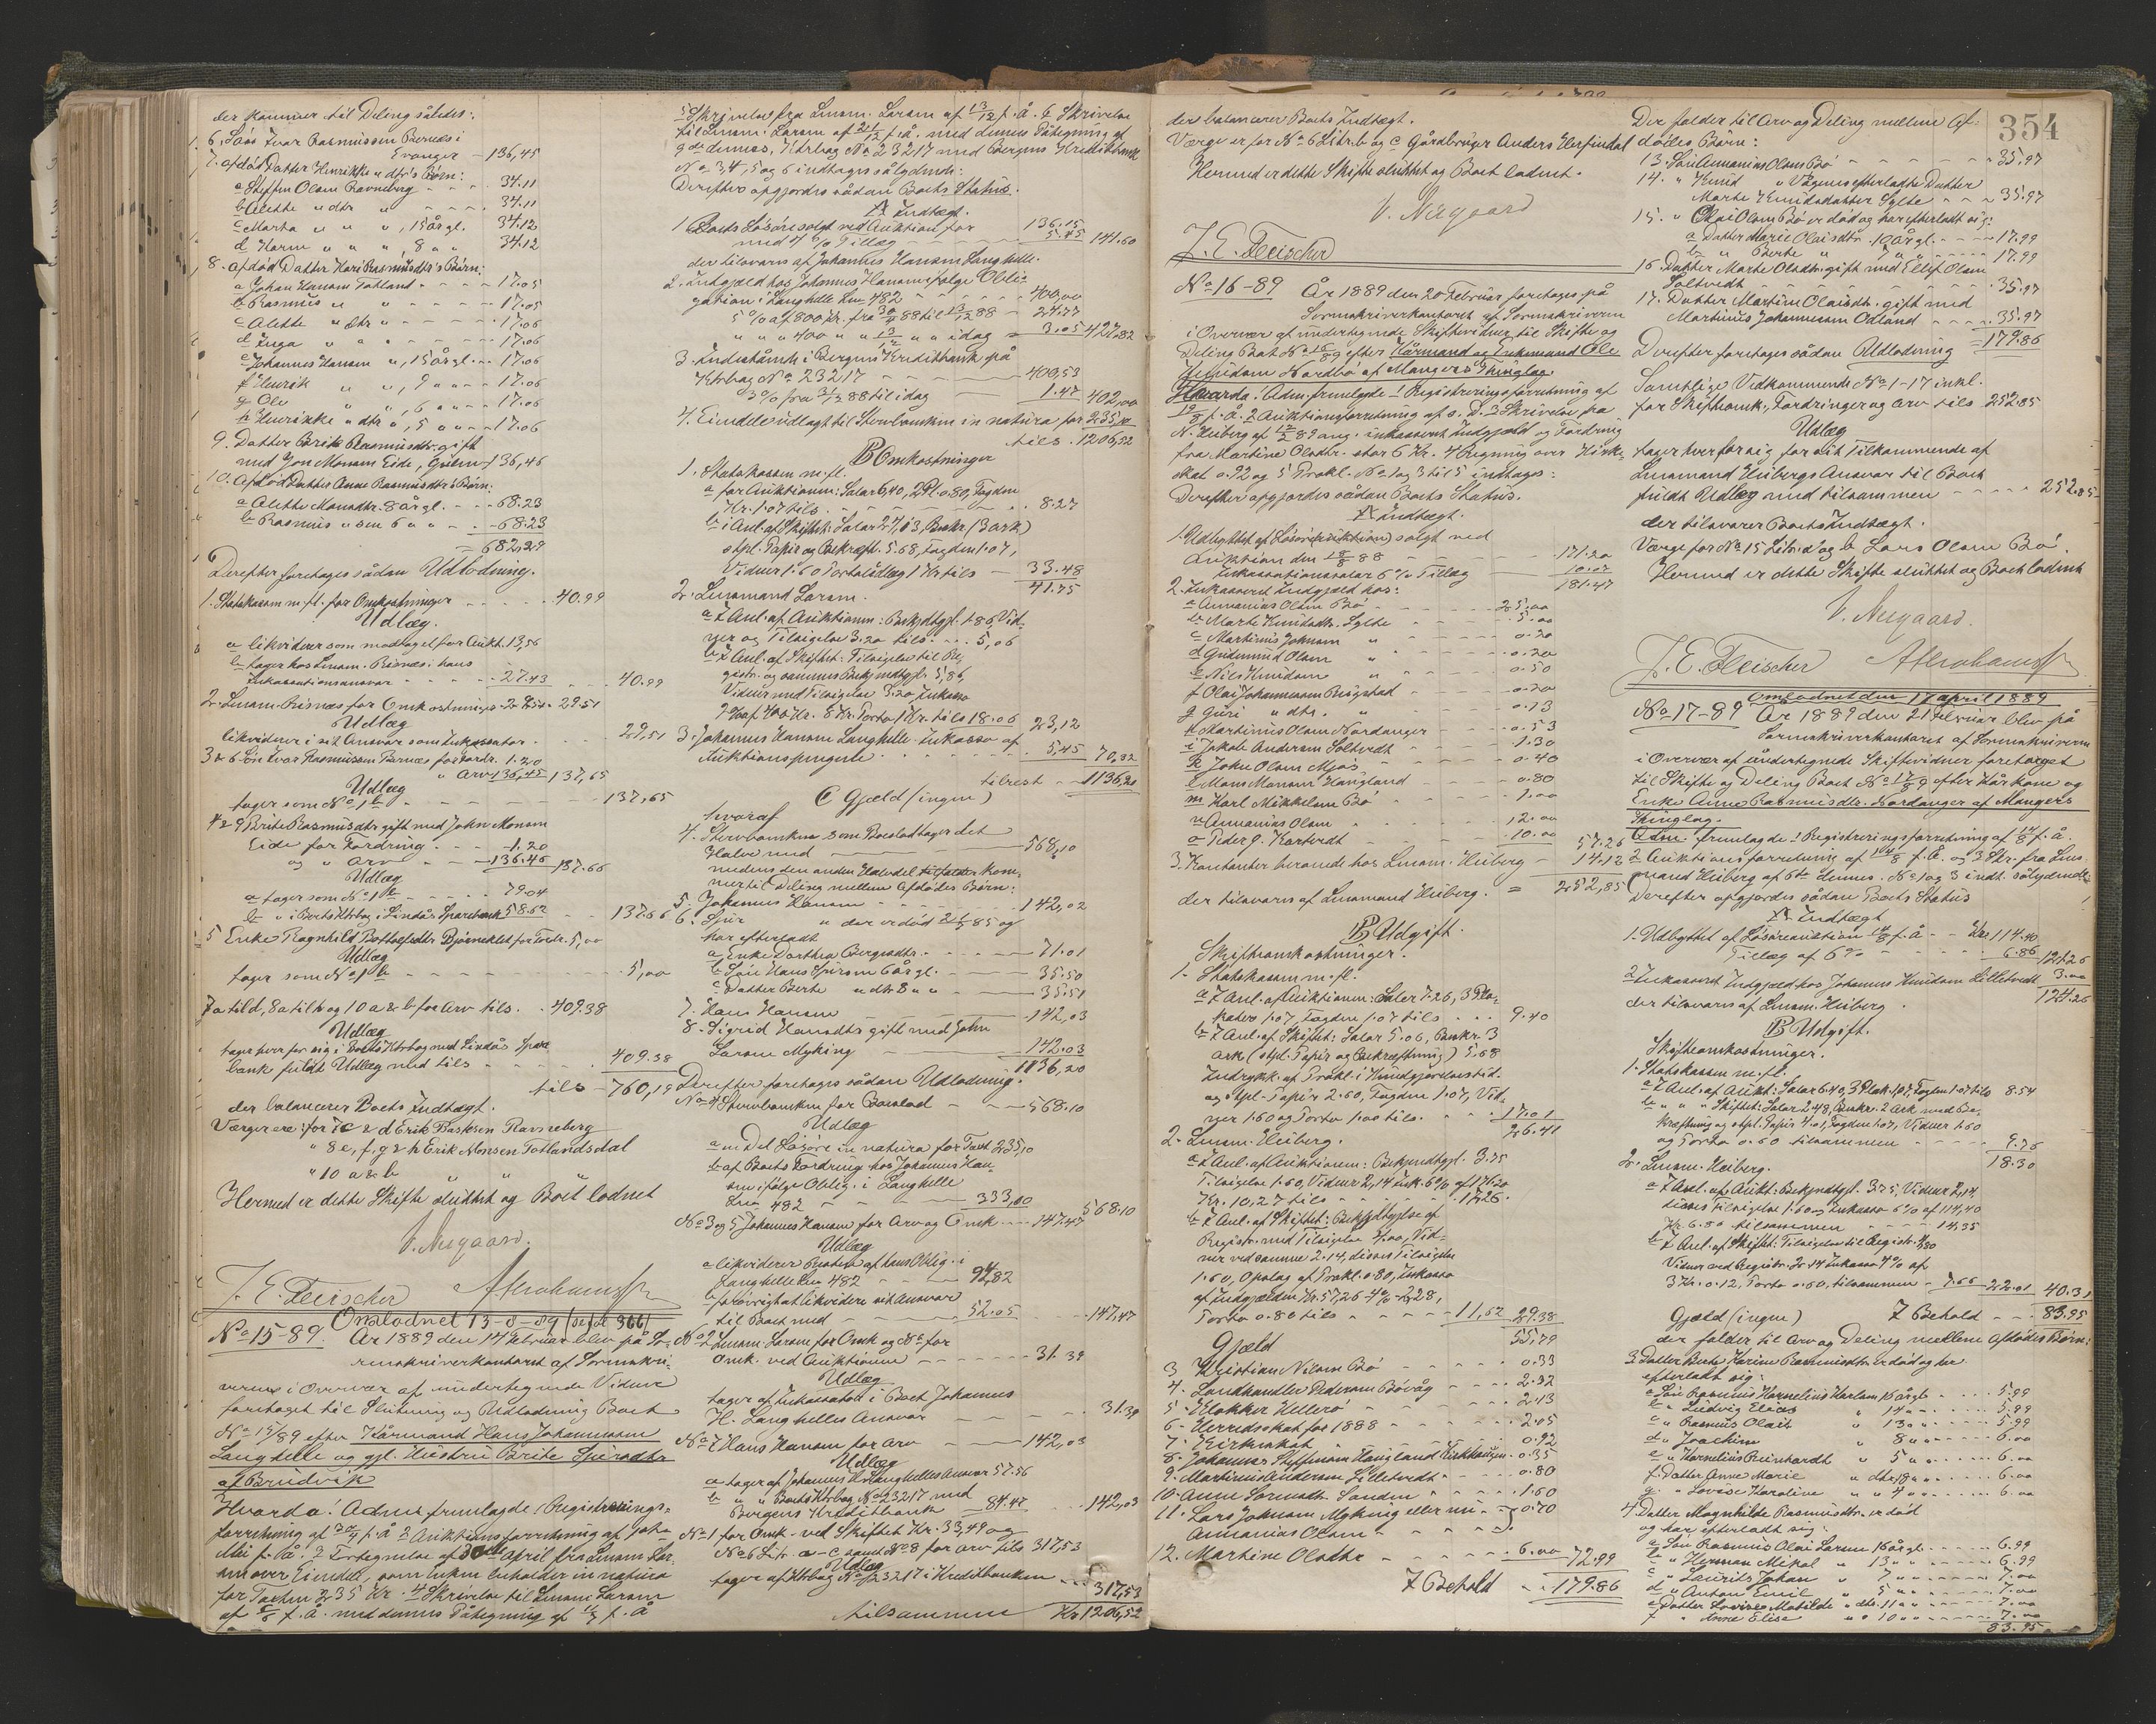 der kommer til Deling således:
6. Søns Ivar Rasmussen Bernæs i
Evanger - 136,45
7. afdød Datter Henrikke " dtr's Børn:
a Steffen Olsen Ravneberg - - 34.11
b Alette " dtr " - - 34.11
c Marta " " " , 15 årgl. 34.12
d Karen " " " 8 " " 34.12
8. afdød Datter Kari Rasmusdtr's Børn:
a Johan Hansen Totland - - 17.05
b Rasmus " " - - 17.05
c Alette " dtr " - - 17.06
d Inga " " " - - 17.06
e Johannes Hansen ", 15 årgl. - - 17.06
f Henrik " " , 9 " " - 17.06
g Ole " " , 6 " " - 17.06
h Henrikke " dtr " , 5 " " - 17.06
9. Datter Brite Rasmusdtr. gift
med Jon Monsen Eide, 136,46
10. afdød Datter Anne Rasmusdtr's Børn.
a Alette Monsdtr. 8 årgl. - - 68.23
b Rasmus " sen 6 " " - - 68.23
= 682,29
Derefter foretages sådan Udlodning.
1. Statskassen m. fl. for Omkostninger - - 40.99
Udlæg.
a likviderer som modtaget for Aukt. 13,56
b tager hos Lensm. Risnæs i hans
Inkassationsansvar - - 27.43 - - 40.99
2. Lensm. Risnæs for Omkostninger 29.51 - 29.51
Udlæg
likviderer i sit Ansvar som Inkassator - - 29,51
3 & 6 Søn Ivar Rasmussen Bernæs for Fordr. 1.20
" Arv 136,45 137,65
Udlæg
tager som No 1 b - - 137,65
4 & 9 Brite Rasmusdtr gift med John Monsen
Eide for Fordring - - 1.20
og " Arv - - 136.46 137.66
Udlæg
a tager som No 1 b - - 79.04
b " i Boets Ktrbog i Lindås Sparebank 58.62 - - 137.66
5 Enke Ragnhild Bottolfsdtr Bjørneklet for Fordr. 5,00
Udlæg
tager som No 1 b - - 5,00
7 a til d, 8 a til h og 10 a & b for Arv tils. - 409.38
Udlæg
tager hver for sig i Boets Ktrbog med Lindås Spare
bank fuldt Udlæg med tils - - 409.38
tils - 760,19
der balancerer Boets Indtægt.
Værger ere: for 7 c & d Erik Basksen Ravneberg
" 8 e, f, g & h Erik Monsen Totlandsdal
" 10 a & b " "
Hermed er dette Skifte sluttet og Boet lodnet
V. Nergaard.
J. E. Fleischer
Omlodnet 13-8-89 366
No 15-89. År 1889 den 14 februar blev på So-
renskriverkontoret af Sorenskri-
veren i Overvær af undertegnede Vidner
foretaget til Slutning og Udlodning Boet
No 15/89 efter Kårmand Hans Johannesen
Langhelle og gjl. Hustru Brite Sjursdtr
af Bruvik
Hvorda: Adms. fremlagde 1 Registrerings-
forretning af 30/4 f. å 2 Auktionsforretning af 3die
Mai f. å. 3 Fortegnelse af 30te april fra Lensm. Lar-
sen over Eiendele, som Enken beholder in natura
for Taxten 235 Kr. 4 Skrivelse til Lensm. Larsen
af f. å. med dennes Påtegning af f. å
5 Skrivelse fra Lensm. Larsen af 13/12 f. å. 6 Skrivelse
til Lensm. Larsen af 21/12 f. å. med dennes Påtegning af
9de dennes, Ktrbog No 23217 med Bergens Kreditbank
No 3, 4, 5 og 6 indtages sålydende:
Derefter opgjordes sådan Boets Status.
A Indtægt.
1. Boets Løsøre solgt ved Auktion for 136.15
med 4 % Tillæg - - 5.45 141.60
der tilsvares af Johannes Hansen Langhelle.
2. Indgjæld hos Johannes Hansen ifølge Obli-
gation i Langhelle Lnr 482 - - 400,00
5 % af 800 Kr. fra 30/4 88 til 13/12 88 - 24.77
" " " 400 " " 13/12 " " idag = 3.05 427,82
3. Indestående i Bergens Kreditbank på
Ktrbog No 23217 - - 400,53
3 % fra 31/12 88 til idag - 1.47 402,00
4. Eiendele udlagt til Stervboenken in natura for 235,10
tils. 1206,52
B Omkostninger
1. Statskassen m. fl.
a for Auktionen: Salær 6,40, 2 Pl. 0.80, Fogden
Kr. 1.07 tils. - - 8.27
b i Anl. af Skiftet: Salær 27,13, Beskr. (3 ark)
stpl. Papir og Bekræft. 5.68, Fogden 1.07,
Vidner 1.60 Portoudlæg 1 Kr. tils - 33.48
41.75
2. Lensmand Larsen.
a I Anl. af Auktionen: Bekjendtgjl. 1.86, Vid-
ner og Tilsigelse 3.20 tils. - - 5,06
b I Anl. af Skiftet: Tilsigelse til Re-
gistr. og sammes Bekjendtgjl. 5.86,
Vidner med Tilsigelse 3.20 Inkasso
2 % af 400 Kr. 8 Kr. Porto 1 Kr. tils 18.06 23,12
3. Johannes Hansen Langhelle Inkasso af
Auktionspengene - - 5.45 70,32
tilrest - 1136,20
C Gjæld (ingen)
hvoraf
4. Stervboenken som Boeslod tager det
Halve med - - 568,10
medens den anden Halvdel tilfalder kom-
mer til Deling mellem Afdødes Børn:
5. Johannes Hansen - - 142,02
6. Sjur " der er død 85 og
har efterladt
a Enke Dorthea Bergesdtr. - - 71.01
b Søn Hans Sjursen 6 årgl. - - 35.50
c Datter Berte " dtr 8 " " - - 35.51
7. Hans Hansen - - 142,03
8. Sigrid Hansdtr gift med John
Larsen Myking - - 142.03
1136,20
Derefter foretages sådan Udlodning.
No 4 Stervboenken for Boeslod - - 568.10
Udlæg
a en Del Løsøre in natura for Taxt 235,10
b af Boets Fordring hos Johannes Han-
sen ifølge Oblig. i Langhelle
Lnr 482 - - 333,00 568.10
No 3 og 5 Johannes Hansen for Arv og Omk. - - 147.47
Udlæg
a likviderer Resten af hans Oblig. i
Langhelle Lnr 482 - - 94,82
b forøvrigt at likvidere sit Ansvar
til Boet med - - 52.65 - - 147,47
No 2 Lensm. Larsen for Omk og No for
Omk. ved Auktionen - - 31.39
Udlæg
tager af Inkassator i Boet Johannes
H. Langhelles Ansvar - - 31.39
No 7 Hans Hansen for Arv - - 142,03
Udlæg
a tager af Johannes H Langhelles Ansvar 57.56
b " " Boets Ktrbog No 23217 med
Bergens Kreditbank - - 84.47 - - 142,03
No 1 for Omk. ved Skiftet Kr. 33,49 og
No 6 Litr. a-c samt No 8 for Arv tils 317,53
Udlæg
tager af Ktrbog No 23217 i Kreditbanken - - 317,53
tilsammen Kr 1206,52
der balancerer Boets Indtægt.
Værge er for No 6 Litr. b og c Gårdbruger Anders Herfindal
Hermed er dette Skifte sluttet og Boet lodnet.
V. Nergaard
J. E. Fleischer
No 16-89 År 1889 den 20 Februar foretages på
Sorenskriverkontoret af Sorenskriveren
i Overvær af undertegnede Skiftevidner til Skifte og
Deling Boet No 16/89 efter Kårmand og Enkemand Ole
Knudsen Nordbø af Mangers Thinglag.
Hvorda: Adm. fremlagde 1 Registreringsforretning af
f. å. 2 Auktionsforretning af s. D. 3 Skrivelse fra
N. Heiberg af 89 ang. inkasseret Indgjæld og Fordring
fra Martine Olsdtr. stor 6 Kr. 4 Regning over Kirke-
skat 0.92 og 5 Prokl. No 1 og 3 til 5 indtages:
Derefter opgjordes sådan Boets Status.
A Indtægt.
1. Udbyttet af Løsøre (auktion) solgt ved
Auktion den 18/8 88 - - 171.20
Inkassationssalær 6 % Tillæg - - 10.27
181.47
2. Inkasseret Indgjæld hos:
a Annanias Olsen Bø - - 25,00
b Marte Knudsdtr. Sylte - - 5.00
c Martinus Johnsen " - - 0.20
d Gudmund Olsen " - - 0.20
e Nils Knudsen " - - 0.50
f Olai Johannesen Bergstad - - 0.20
g Guri " dtr. " - - 0.13
h Martinus Olsen Nordanger - - 0.53
i Jakob Andersen Soltvedt - - 1.30
k John Olsen Mjøs - - 0.40
l Mons Monsen Haugland - - 0.80
m Karl Mikkelsen Bø - - 1.00
n Annanias Olsen - - 12.00
o Peder J. Kartvedt - - 10.00 57.26
3. Kontanter beroende hos Lensm. Heiberg - 14.12
der tilsvares af Lensmand Heiberg. = 252,85
B Udgift.
Skifteomkostninger.
1. Statskassen m. fl.
a I Anl. af Auktionen: Salær 7.26, 3 Pla-
kater 1.07, Fogden 1.07 tils - - 9.40
b I Anl. af Skiftet: Salær 5.06, Beskr. 3
ark (stpl. Papir og Bekræftning) 5.68
Indrykk. af Prokl. i Kundgjørelsestid.
og stpl. Papir 2.60, Fogden 1.07, Vid-
ner 1.60 og Porto 1.00 tils. - - 17.01
26.41
2. Lensm. Heiberg.
a I Anl. af Auktionen: Bekjendtgjl. 3.75
Tilsigelse 1.60, Vidner 2,14 Ink. 6 % af 171.20
Kr. 10,27 tils - - 17.26.
b I Anl. af Skiftet: Bekjendtgjørelse af
Registr. med Tilsigelse 4.00, Vid-
ner ved samme 2.14, disses Tilsigelse
1.60, Opslag af Prokl. 0.80, Inkasso
af Indgjælden Kr. 57,26 - 4 % - 2,28,
Porto 0.80 tils - - 11,62 29.38
55,79
Gjæld
3 Kristian Nilsen Bø - - 0.33
4. Landhandler Pedersen Bøvåg - - 2.32
5. Klokker Hellerø - - 2.13
6. Herredsskat for 1888 - - 2.05
7. Kirkeskat - - 0.92
8. Johannes Steffensen Haugland Kirkhougen - 0.35
9. Martinus Andersen Lilletvedt - - 0.80
10. Anne Larsdtr. Sanden - - 1.60
11. Lars Johnsen Myking eller nu - 0.70
Annanias Olsen - -
12. Martine Olsdtr - - 6.00 72.99
I Behold - - 179.86
354
Der falder til Arv og Deling mellem Af-
dødes Børn:
13. Søn Annanias Olsen Bø - - 35.97
14. " Knud " Vågenes efterladte Datter
Marte Knudsdatter Sylte - - 35.97
15. " Olai Olsen Bø er død og har efterladt sig:
a Datter Marie Olaisdtr. 10 årgl. - - 17.99
b " Berte " 7 " " - - 17.99
16. Datter Marte Olsdtr. gift med Ellif Olsen
Soltvedt - - 35.97
17. Datter Martine Olaisdtr. gift med
Martinus Johannessen Odland - - 35.97
= 179.86
Derefter foretages sådan Udlodning
Samtlige Vedkommende No 1-17 inkl.
for Skifteomk., Fordringer og Arv tils 252.85
Udlæg
tager hver for sig for sit Tilkommende af
Lensmand Heibergs Ansvar til Boet
fuldt Udlæg med tilsammen - - 252.85
der tilsvarer Boets Indtægt.
Værge for No 15 Litr. a og b Lars Olsen Bø.
Hermed er dette Skifte sluttet og Boet lodnet
V. Nergaard.
J. E. Fleischer
Omlodnet den 17 april 1889
No 17-89 År 1889 den 21 Februar blev på
Sorenskriverkontoret af Sorenskriveren
i Overvær af undertegnede Skiftevidner foretaget
til Skifte og Deling Boet No 17/89 efter Kårkone og
Enke Anne Rasmusdtr. Nordanger af Mangers
Thinglag.
Adm. fremlagde 1 Registreringsforretning af 14/8 f. å.
2 Auktionsforretning af 14/8 f. å. og 3 Skr. fra Lens-
mand Heiberg af 6te dennes. No 1 og 3 indt. sålydende
Derefter opgjordes sådan Boets Status
A Indtægt
1. Udbyttet af Løsøreauktion 14/8 f. å - - Kr. 114.40
Tillæg af 6 % - - 6.86 121.26
2 Inkasseret Indgjæld hos Johannes Knudsen Lilletvedt 3.00
der tilsvares af Lensm. Heiberg. 124.26
B Udgift.
Skifteomkostninger.
1. Statskassen m. fl.
a I Anl. af Aukt: Salær 6.40, 3 Plak. 1.07, Fogden 1.07 tils 8.54
b " " " Skiftet: Salær 2.48, Beskr. 2 Ark med Be-
kræftning og stpl. Papir 4.01, Fogden 1.07, Vidner 1.60
og Porto 0.60 tilsammen - - 9.76
18.30
2. Lensm. Heiberg.
a I Anl. af Aukt: Bekjendtgjl. 3.75, Vidner 2,14
disses Tilsigelse 1.60 og Inkasso 6 % af 114,40
Kr. 6.86 tilsammen - - 14.35
b I Anl. af Skiftet: Tilsigelse til Registr. 4.80
Vidner ved Registr. 2.14 Inkasso 4 % af
3 Kr. 0.12, Porto 0.60, tilsammen - 7.66 22.01 40.31
Gjæld (ingen) I Behold - - 83,95
der falder til Arv og Deling mellem Afdødes Børn:
3 Datter Berte Karine Rasmusdtr. er død og har
efterladt sig:
a Søn Rasmus Kornelius Karlsen 16 årgl. - - 5.99
b " Ludvig Elias " 14 " - - 5.99
c " Rasmus Olai " 13 " - - 5.99
d " Joachim " 8 " - - 6.00
e " Kornelius Reinhardt " 5 " - - 6.00
f. Datter Anne Marie " dtr. 18 " - - 6.00
g. " Lovise Karoline " " 4 " - - 6.00
4 Datter Magnhilde Rasmusdtr. er død
og har efterladt sig:
a Søn Rasmus Olai Larsen 16 årgl. - - 6.99
b " Herman Mikal " 13 " " - - 6.99
c " Laurits Johan " 7 " " - - 7.00
d " Anton Emil " 5 " " - - 7.00
e Datter Lovise Matilde " dtr. 11 " " - - 7.00
f " Anne Elise " " 10 " " - - 7.00
83.95